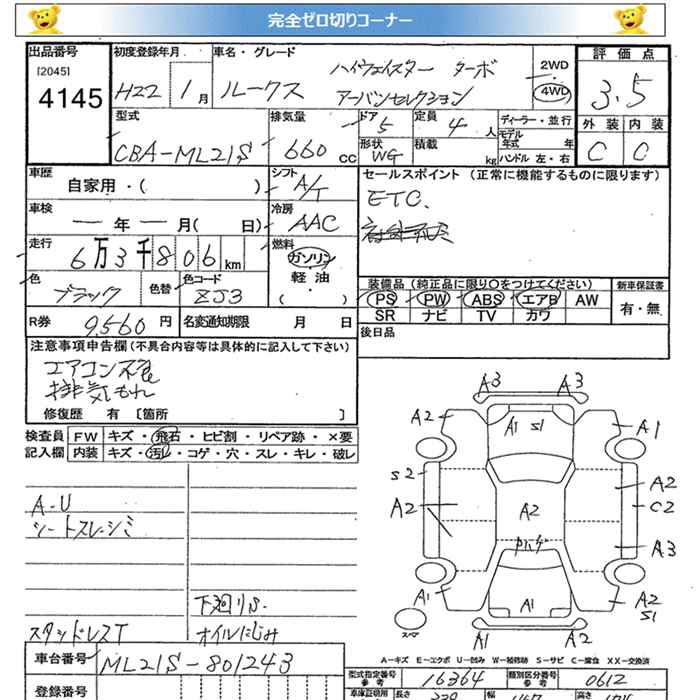 完全ゼロ切りコーナー
出品番号 初度登録年月 車名・グレード 評価点
[2045] 4145
H22 1月 ルークス ハイウェイスター ターボ アーバンセレクション
2WD
4WD
3.5
型式 排気量 ドア 定員 ディーラー・並行 外装 内装
CBA-ML21S 660cc 5 4人 モデル年式 年 C C
形状 WG 積載 kg ハンドル 左・右
車歴 自家用・( ) シフト A/T
セールスポイント(正常に機能するものに限ります)
ETC.
車検 ー年ー月(ー日) 冷房 AAC
走行 6万3千806km 燃料 ガソリン 軽油 ( )
色 ブラック 色替 色コード ZJ3
装備品(純正品に限り○をつけてください) 新車保証書
PS PW ABS エアB AW 有・無
SR ナビ TV カワ
R券 9,560円 名変通知期限 月 日
後日品
注意事項申告欄(不具合内容等は具体的に記入して下さい)
エアコン不良
排気もれ
修復歴 有 [箇所 ]
検査員 FW キズ・飛石・ヒビ割・リペア跡・×要
記入欄 内装 キズ・汚れ・コゲ・穴・スレ・キレ・破レ
A-U
シートスレ・シミ
下廻りS.
スタッドレスT オイルにじみ
A3 A3
A2 A1 S1 A1
S2 A2
A2 A2 C2
A3
A1 A1 A2 S1
スペア
A1 A2
A-キズ E-エクボ U-凹み W-補修跡 S-サビ C-腐食 XX-交換済
車台番号 ML21S-801243
型式指定番号 参考 16364 類別区分番号 参考 0612
登録番号
車庫証明用 長さ 339 幅 147 高さ